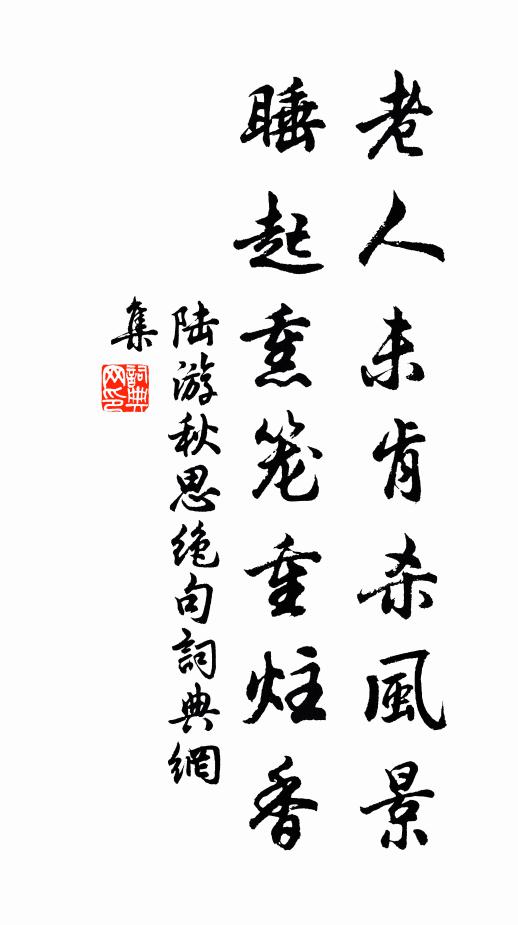 老人未肯杀風景
睡起熏笼重炷香
陆游秋思绝句詞典網
集
詞典
网印